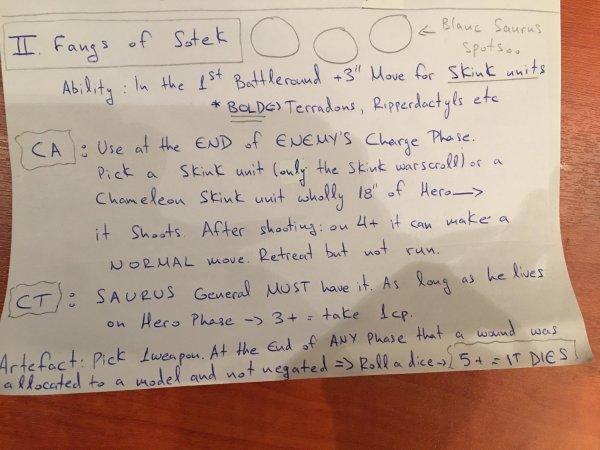 II. Fangs of Sotek
← Blanc Saurus
Spots..
Ability: In the 1st Battleround +3" Move for Skink units
* BOLD Terradons, Ripperdactyls etc
CA : Use at the END of ENEMY'S Charge Phase.
Pick a Skink unit (only the Skink warscroll) or a
Chameleon Skink unit wholly 18" of Hero →
it Shoots. After shooting: on 4+ it can make a
NORMAL move. Retreat but not run.
CT : SAURUS General MUST have it. As long as he lives
on Hero Phase → 3+ = take 1cp.
Artefact: Pick 1weapon. At the End of ANY Phase that a wound was
allocated to a model and not negated => Roll a dice → 5+ = IT DIES